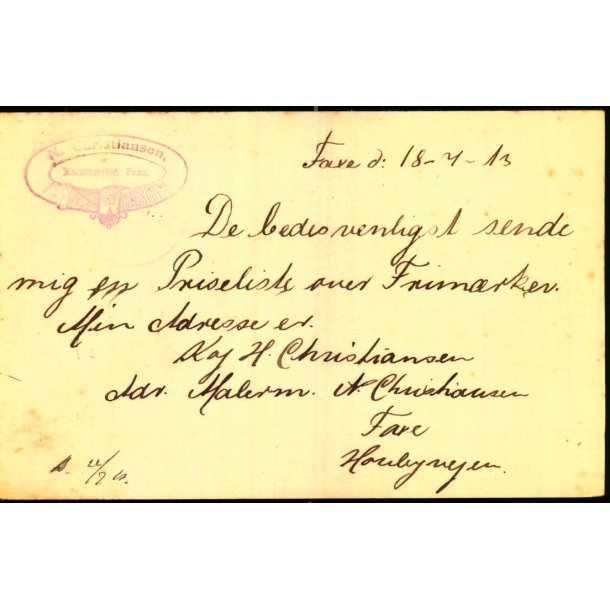 N. Christiansen,
Malermester. Faxe.
Faxe d: 18-7-13
De bedes venligst sende
mig en Priseliste over Frimærker.
Min Adresse er.
Kaj H. Christiansen
Adr. Malerm. N. Christiansen
Faxe